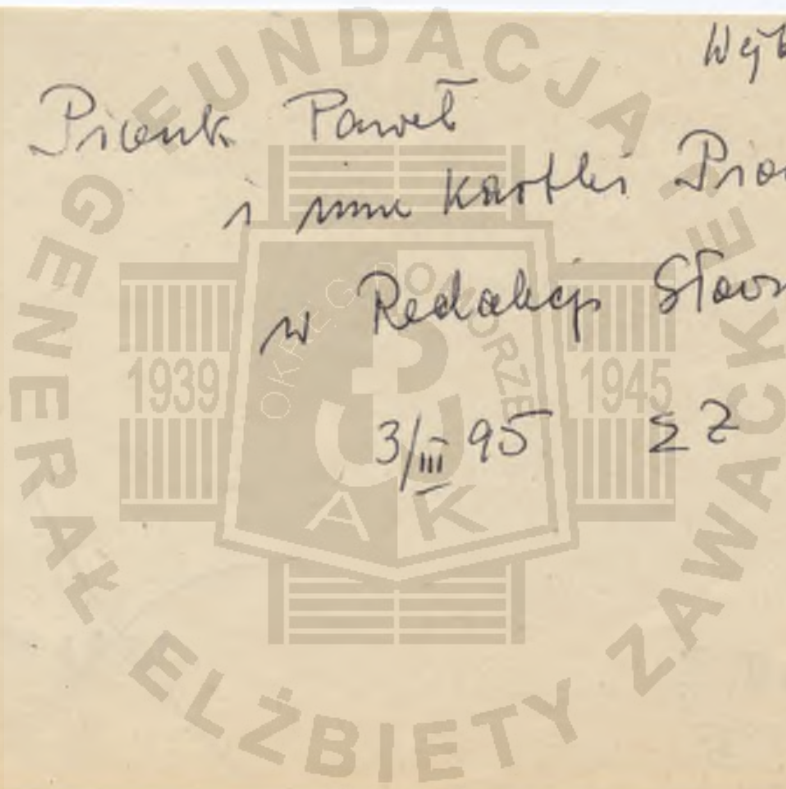 Wyb
Pionk Paweł
i inne kartki Pion
w Redakcji Słow
3/III 95 EZ
FUNDACJA GENERAŁ ELŻBIETY ZAWACKIEJ
OKRĘG POMORZE
1939 1945
AK